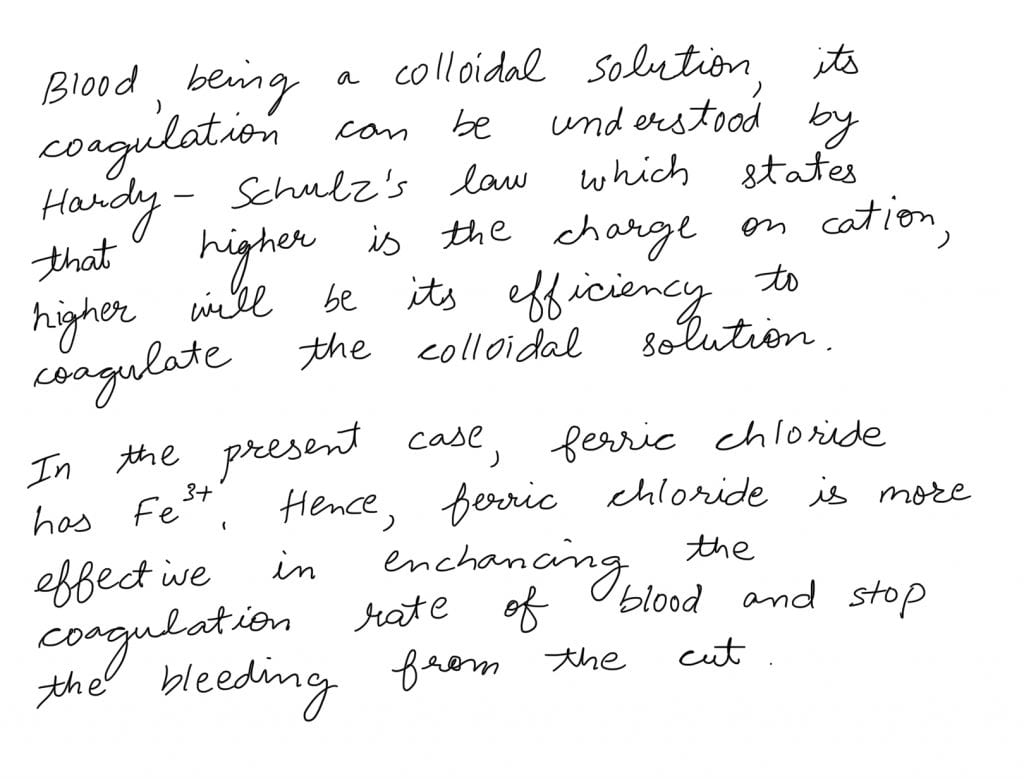 Blood, being a colloidal solution, its
coagulation can be understood by
Hardy - Schulz's law which states
that higher is the charge on cation,
higher will be its efficiency to
coagulate the colloidal solution.
In the present case, ferric chloride
has Fe³⁺. Hence, ferric chloride is more
effective in enchancing the
coagulation rate of blood and stop
the bleeding from the cut.